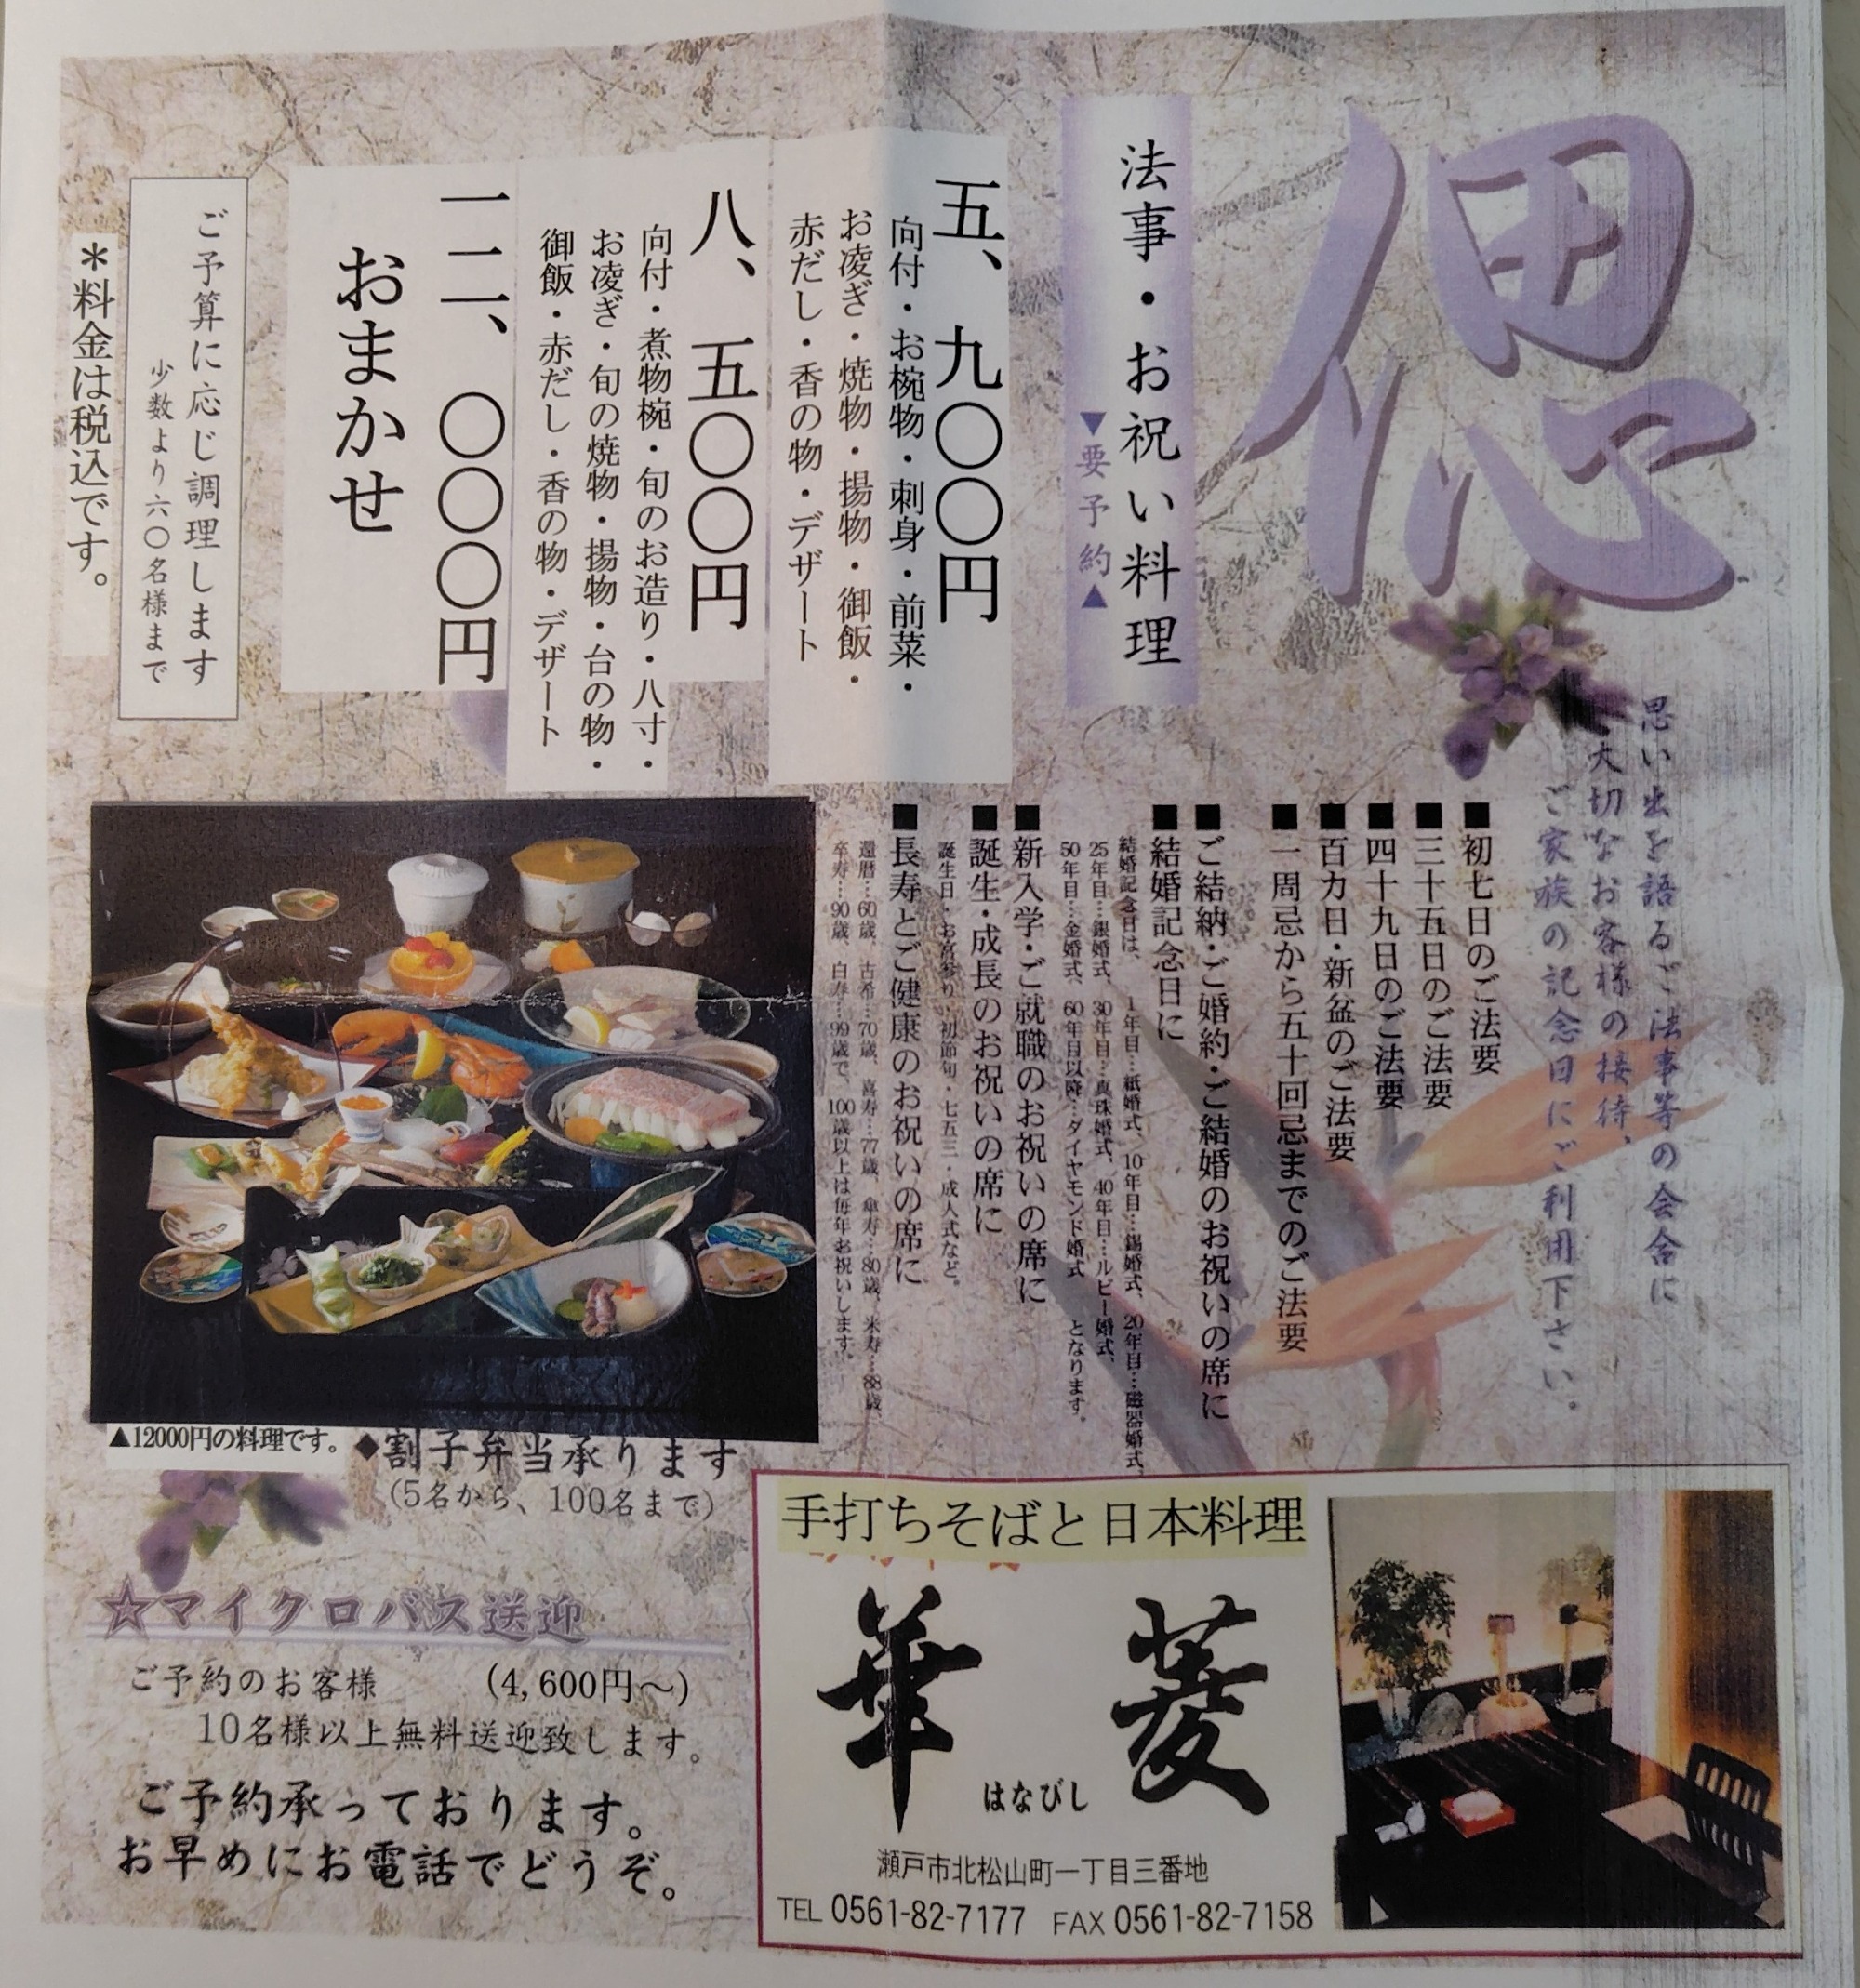 偲
思い出を語るご法事等の会食に
大切なお客様の接待、
ご家族の記念日にご利用下さい。
法事・お祝い料理
▼要予約▲
五、九〇〇円
向付・お椀物・刺身・前菜・
お凌ぎ・焼物・揚物・御飯・
赤だし・香の物・デザート
八、五〇〇円
向付・煮物椀・旬のお造り・八寸・
お凌ぎ・旬の焼物・揚物・台の物・
御飯・赤だし・香の物・デザート
一二、〇〇〇円
おまかせ
ご予算に応じ調理します
少数より六〇名様まで
＊料金は税込です。
■初七日のご法要
■三十五日のご法要
■四十九日のご法要
■百カ日・新盆のご法要
■一周忌から五十回忌までのご法要
■ご結納・ご婚約・ご結婚のお祝いの席に
■結婚記念日に
結婚記念日は、1年目…紙婚式、10年目…錫婚式、20年目…磁器婚式、
25年目…銀婚式、30年目…真珠婚式、40年目…ルビー婚式、
50年目…金婚式、60年目以降…ダイヤモンド婚式 となります。
■新入学・ご就職のお祝いの席に
■誕生・成長のお祝いの席に
誕生日・お宮参り・初節句・七五三・成人式など。
■長寿とご健康のお祝いの席に
還暦…60歳、古希…70歳、喜寿…77歳、傘寿…80歳、米寿…88歳、
卒寿…90歳、白寿…99歳で、100歳以上は毎年お祝いします。
▲12000円の料理です。
◆割子弁当承ります
(5名から、100名まで)
☆マイクロバス送迎
ご予約のお客様 (4,600円〜)
10名様以上無料送迎致します。
ご予約承っております。
お早めにお電話でどうぞ。
手打ちそばと日本料理
華菱
はなびし
瀬戸市北松山町一丁目三番地
TEL 0561-82-7177 FAX 0561-82-7158